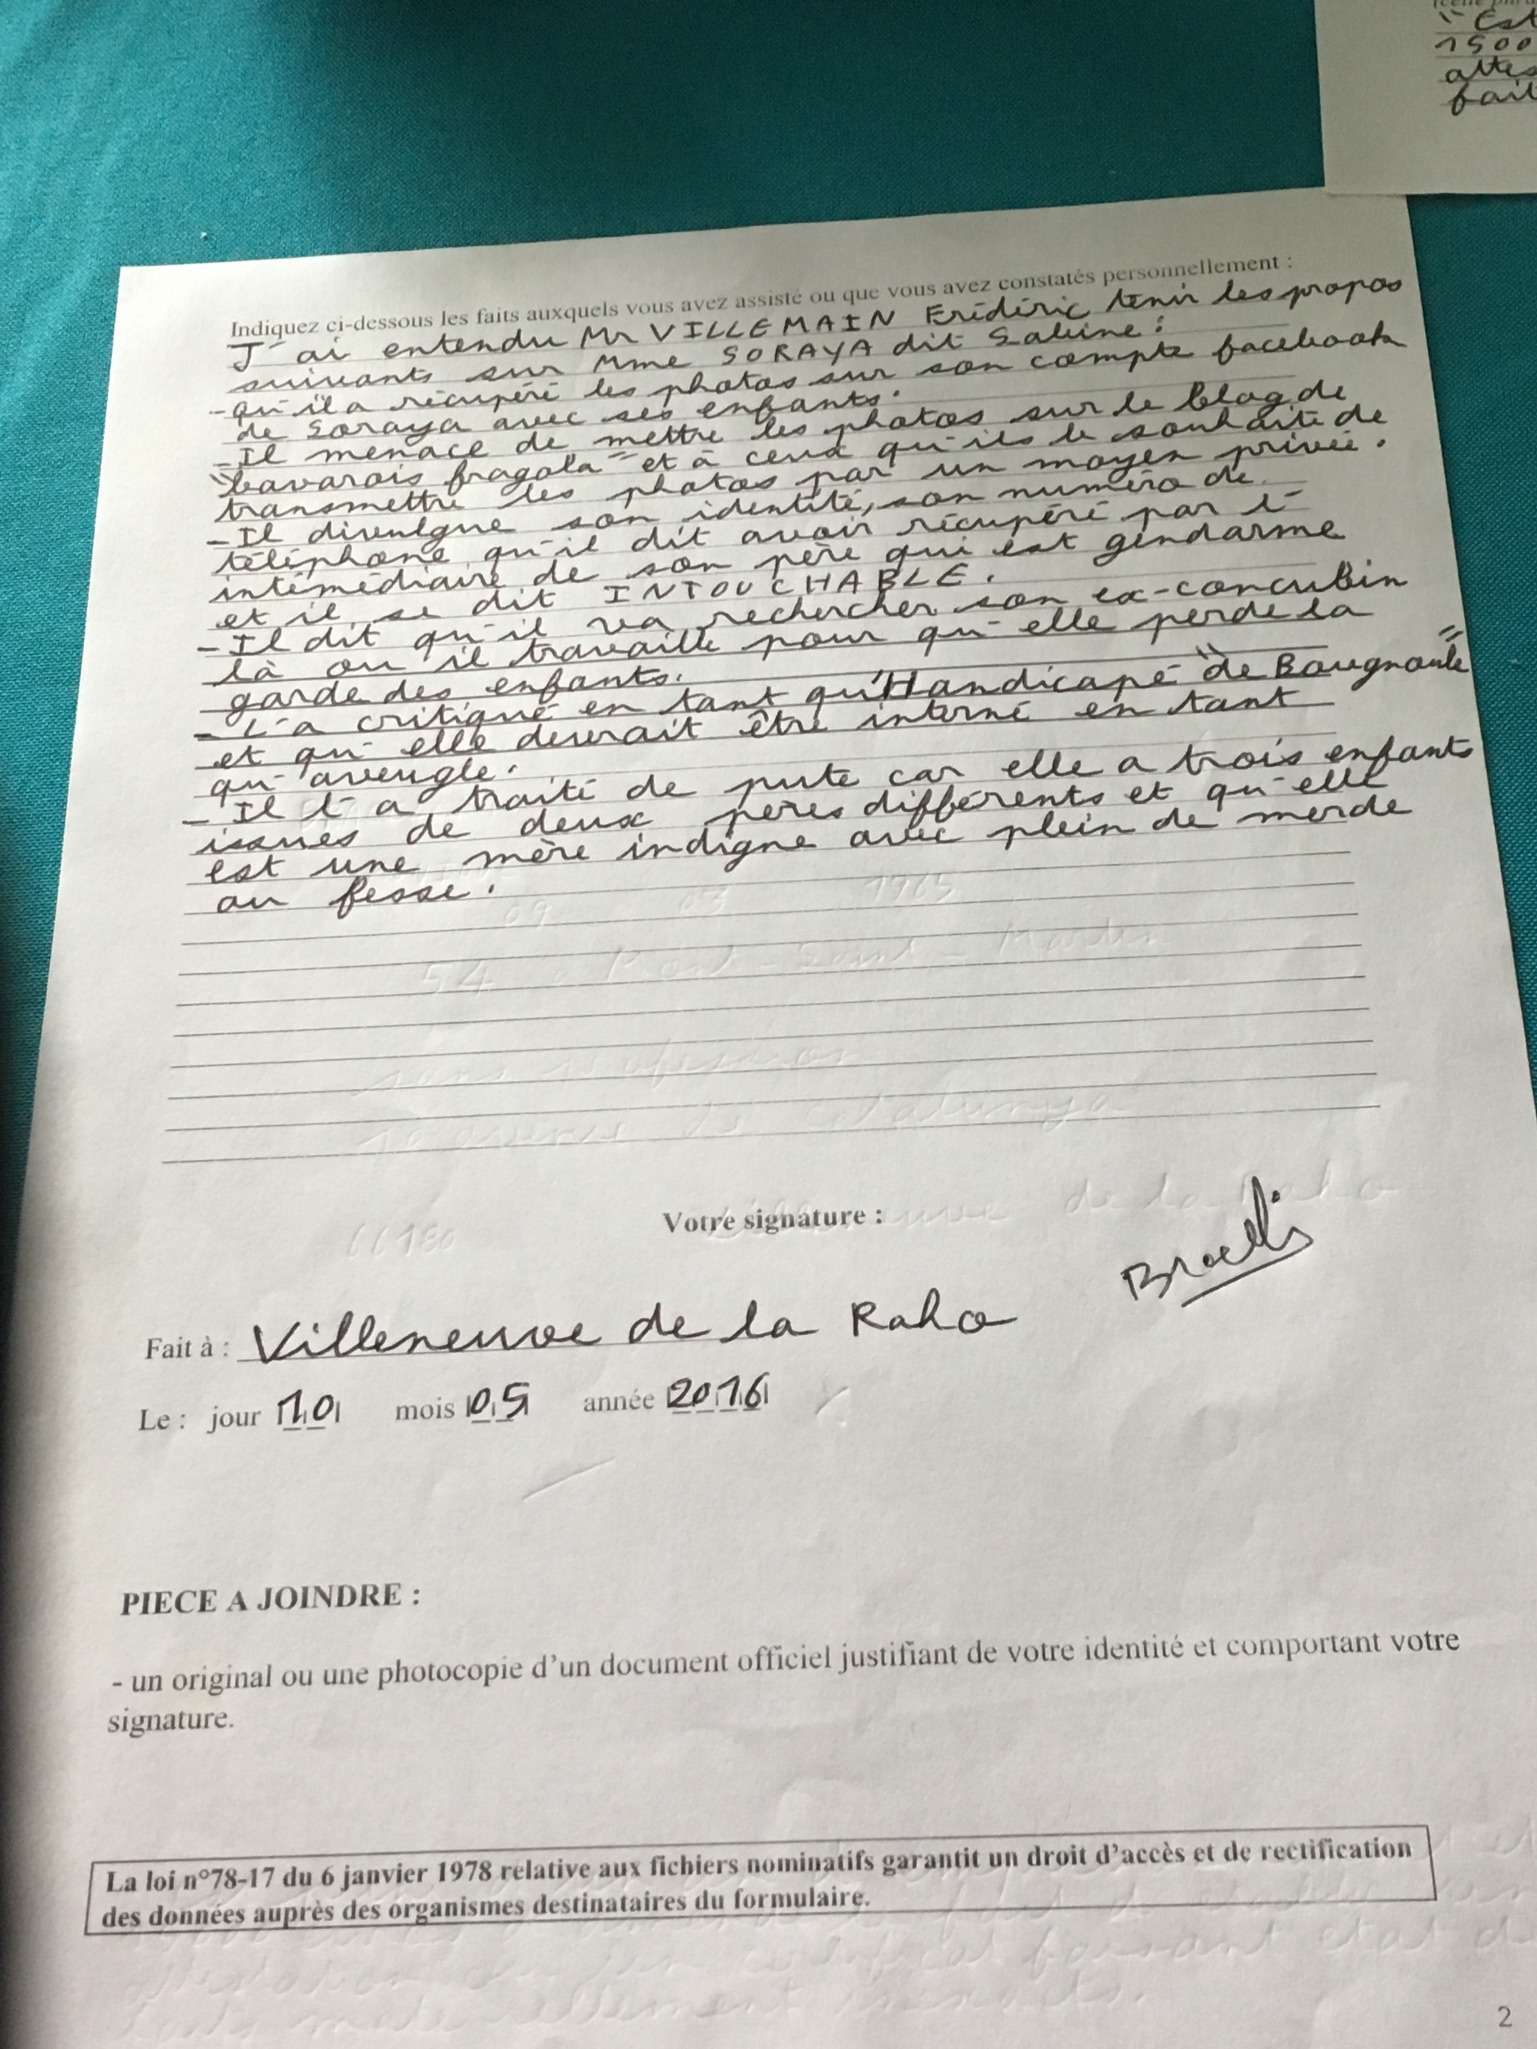 "Est
1500
attes
fait
Indiquez ci-dessous les faits auxquels vous avez assisté ou que vous avez constatés personnellement :
J'ai entendu Mr VILLEMAIN Frédéric tenir les propos
suivants sur Mme SORAYA dit Sabine :
- qu'il a récupéré les photos sur son compte facebook
de Soraya avec ses enfants.
- Il menace de mettre les photos sur le blog de
"bavarois fragola" et à ceux qu'ils le souhaite de
transmettre les photos par un moyen privée.
- Il divulgue son identité, son numéro de
téléphone qu'il dit avoir récupéré par l'
intémédiaire de son père qui est gendarme
et il se dit INTOUCHABLE.
- Il dit qu'il va rechercher son ex-concubin
là ou il travaille pour qu'elle perde la
garde des enfants.
- L'a critiqué en tant qu'Handicapé "de Bougnoule"
et qu'elle devrait être interné en tant
qu'aveugle.
- Il l'a traité de pute car elle a trois enfants
issues de deux pères différents et qu'elle
est une mère indigne avec plein de merde
au fesse.
Votre signature :
Fait à : Villeneuve de la Raho
Le : jour 10 mois 05 année 2016
PIECE A JOINDRE :
- un original ou une photocopie d'un document officiel justifiant de votre identité et comportant votre
signature.
La loi n°78-17 du 6 janvier 1978 relative aux fichiers nominatifs garantit un droit d'accès et de rectification
des données auprès des organismes destinataires du formulaire.
2